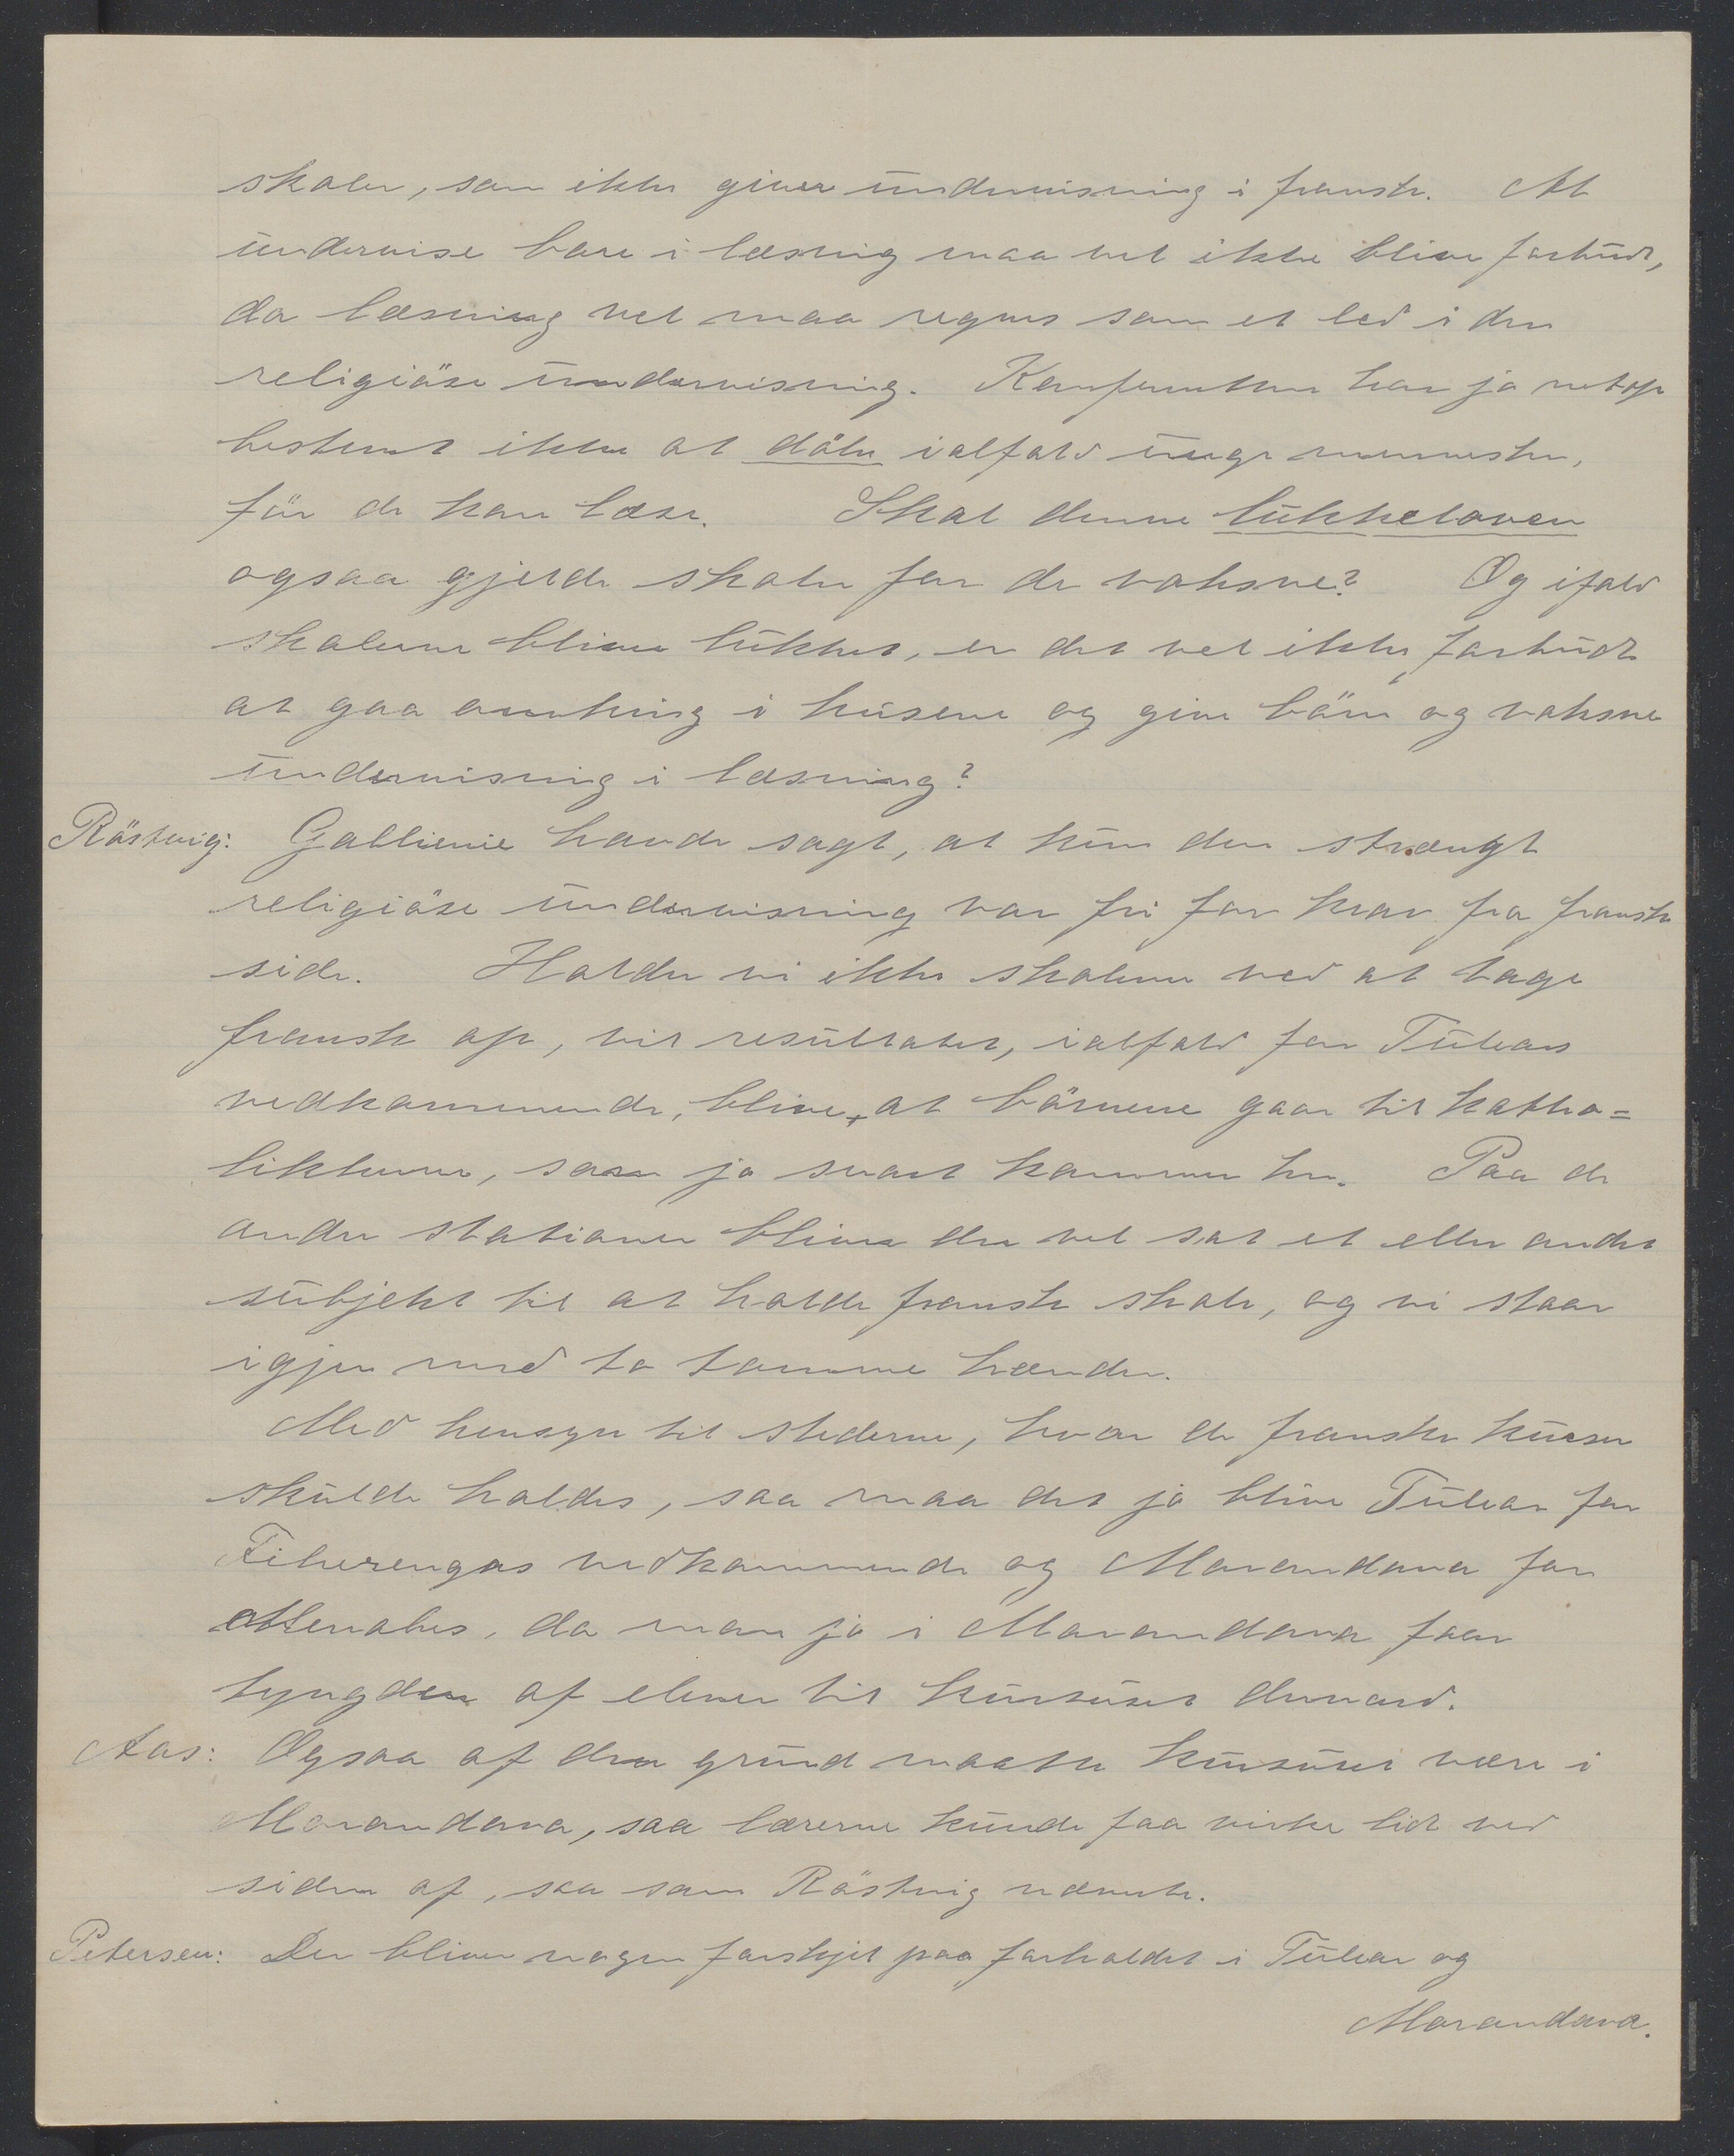 skoler, som ikke giver undervisning i fransk. At
undervise bare i læsning maa vel ikke blive forbudt,
da læsning vel maa regnes som et led i den
religiöse undervisning. Konferentsen har jo netop
bestemt ikke at döbe ialfald unge mennesker,
för de kan læse. Skal denne lukkeloven
ogsaa gjelde skoler for de voksne? Og ifald
skolerne bliver lukket, er det vel ikke forbudt
at gaa omkring i husene og give börn og voksne
undervisning i læsning?
Röstvig: Gallienie havde sagt, at kun den strængt
religiöse undervisning var fri for krav fra fransk
side. Holder vi ikke skolerne ved at tage
fransk op, vil resultatet, ialfald for Tulears
vedkommende, blive, at börnene gaar til katho=
likkerne, som jo snart kommer her. Paa de
andre stationer bliver der vel sat et eller andet
subjekt til at holde fransk skole, og vi staar
igjen med to tomme hænder.
Med hensyn til stederne, hvor de franske kurser
skulde holdes, saa maa det jo blive Tulear for
Fiherengas vedkommende og Morondava for
Menabes, da man jo i Morondava faar
tyngden af elever til kursuset derned.
Aas: Ogsaa af den grund maatte kursuset være i
Morondava, saa lærerne kunde faa virke lidt ved
siden af, saa som Röstvig nævnte.
Petersen: Der bliver nogen forskjel paa forholdet i Tulear og
Morondava.